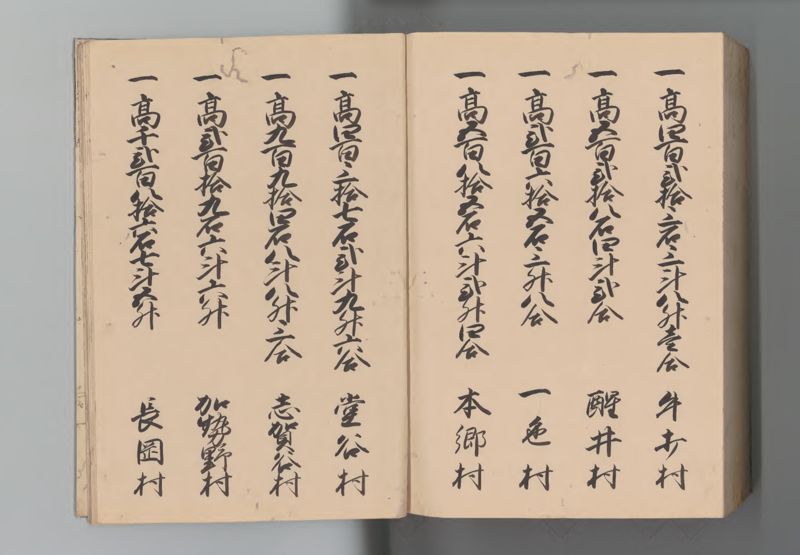 一 髙四百弐拾三石三斗八升壱合 牛打村
一 髙五百弐拾八石四斗弐合 醒井村
一 髙弐百六拾五石三升八合 一色村
一 髙五百八拾五石六斗弐升四合 本郷村
一 髙四百三拾七石弐斗九升六合 堂谷村
一 髙九百九拾四石八斗八升三合 志賀谷村
一 髙弐百拾九石六斗六升 加勢野村
一 髙千弐百八拾六石七斗五升 長岡村